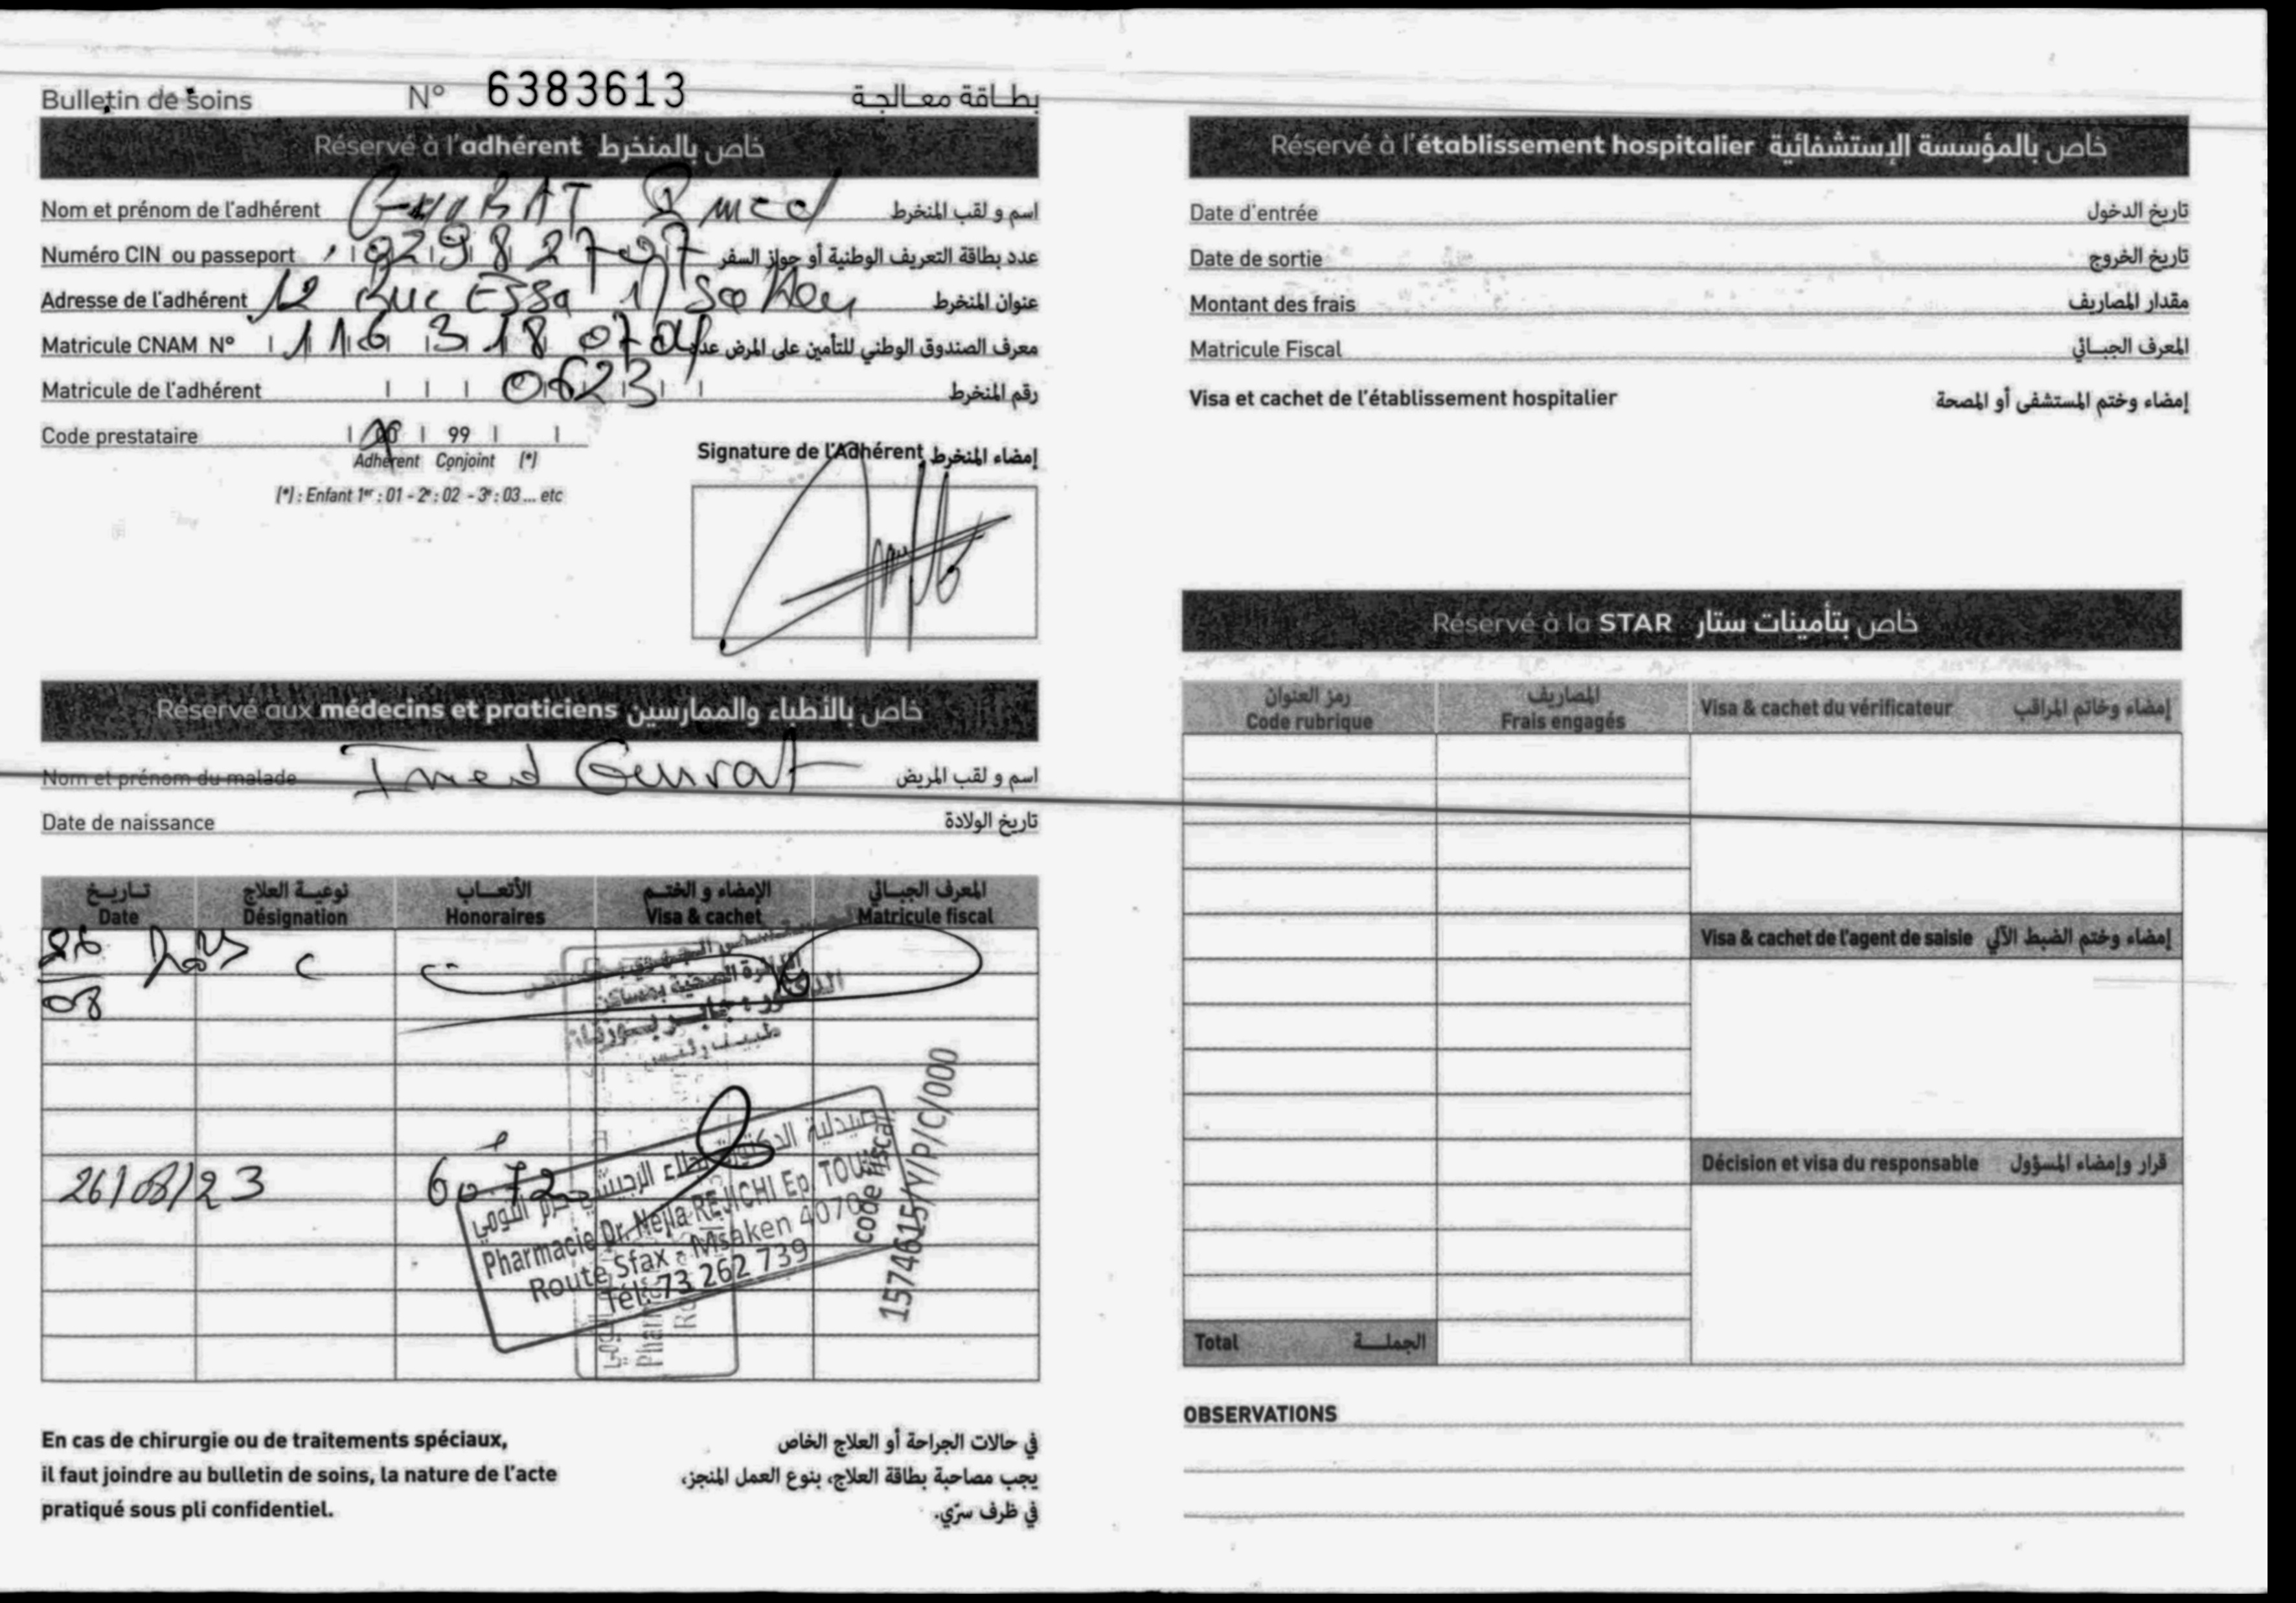 Bulletin de soins N° 6383613 بطاقة معالجة
Réservé à l'adhérent خاص بالمنخرط
Nom et prénom de l'adhérent GUURAT Imed اسم و لقب المنخرط
Numéro CIN ou passeport عدد بطاقة التعريف الوطنية أو جواز السفر
Adresse de l'adhérent 12 Rue عنوان المنخرط
Matricule CNAM N° 116 318 07 معرف الصندوق الوطني للتأمين على المرض عدد
Matricule de l'adhérent 0623 رقم المنخرط
Code prestataire 00 99
Adhérent Conjoint (*)
(*) : Enfant 1er : 01 - 2e : 02 - 3e : 03 ... etc
Signature de l'Adhérent إمضاء المنخرط
Réservé aux médecins et praticiens خاص بالأطباء والممارسين
Nom et prénom du malade Imed Guurat اسم و لقب المريض
Date de naissance تاريخ الولادة
تاريخ نوعية العلاج الأتعاب الإمضاء و الختم المعرف الجبائي
Date Désignation Honoraires Visa & cachet Matricule fiscal
26 C
08
26/08/23
صيدلية الدكتورة
Pharmacie Dr. Nejla REJICHI Ep. TOUMI
Route Sfax - Msaken 4070
Tél: 73 262 739
code fiscal
1574615/Y/P/C/000
En cas de chirurgie ou de traitements spéciaux,
il faut joindre au bulletin de soins, la nature de l'acte
pratiqué sous pli confidentiel.
في حالات الجراحة أو العلاج الخاص
يجب مصاحبة بطاقة العلاج، بنوع العمل المنجز،
في ظرف سرّي.
Réservé à l'établissement hospitalier خاص بالمؤسسة الإستشفائية
Date d'entrée تاريخ الدخول
Date de sortie تاريخ الخروج
Montant des frais مقدار المصاريف
Matricule Fiscal المعرف الجبائي
Visa et cachet de l'établissement hospitalier إمضاء وختم المستشفى أو المصحة
Réservé à la STAR خاص بتأمينات ستار
رمز العنوان المصاريف
Code rubrique Frais engagés Visa & cachet du vérificateur إمضاء وخاتم المراقب
Visa & cachet de l'agent de saisie إمضاء وختم الضبط الآلي
Décision et visa du responsable قرار وإمضاء المسؤول
Total الجملة
OBSERVATIONS